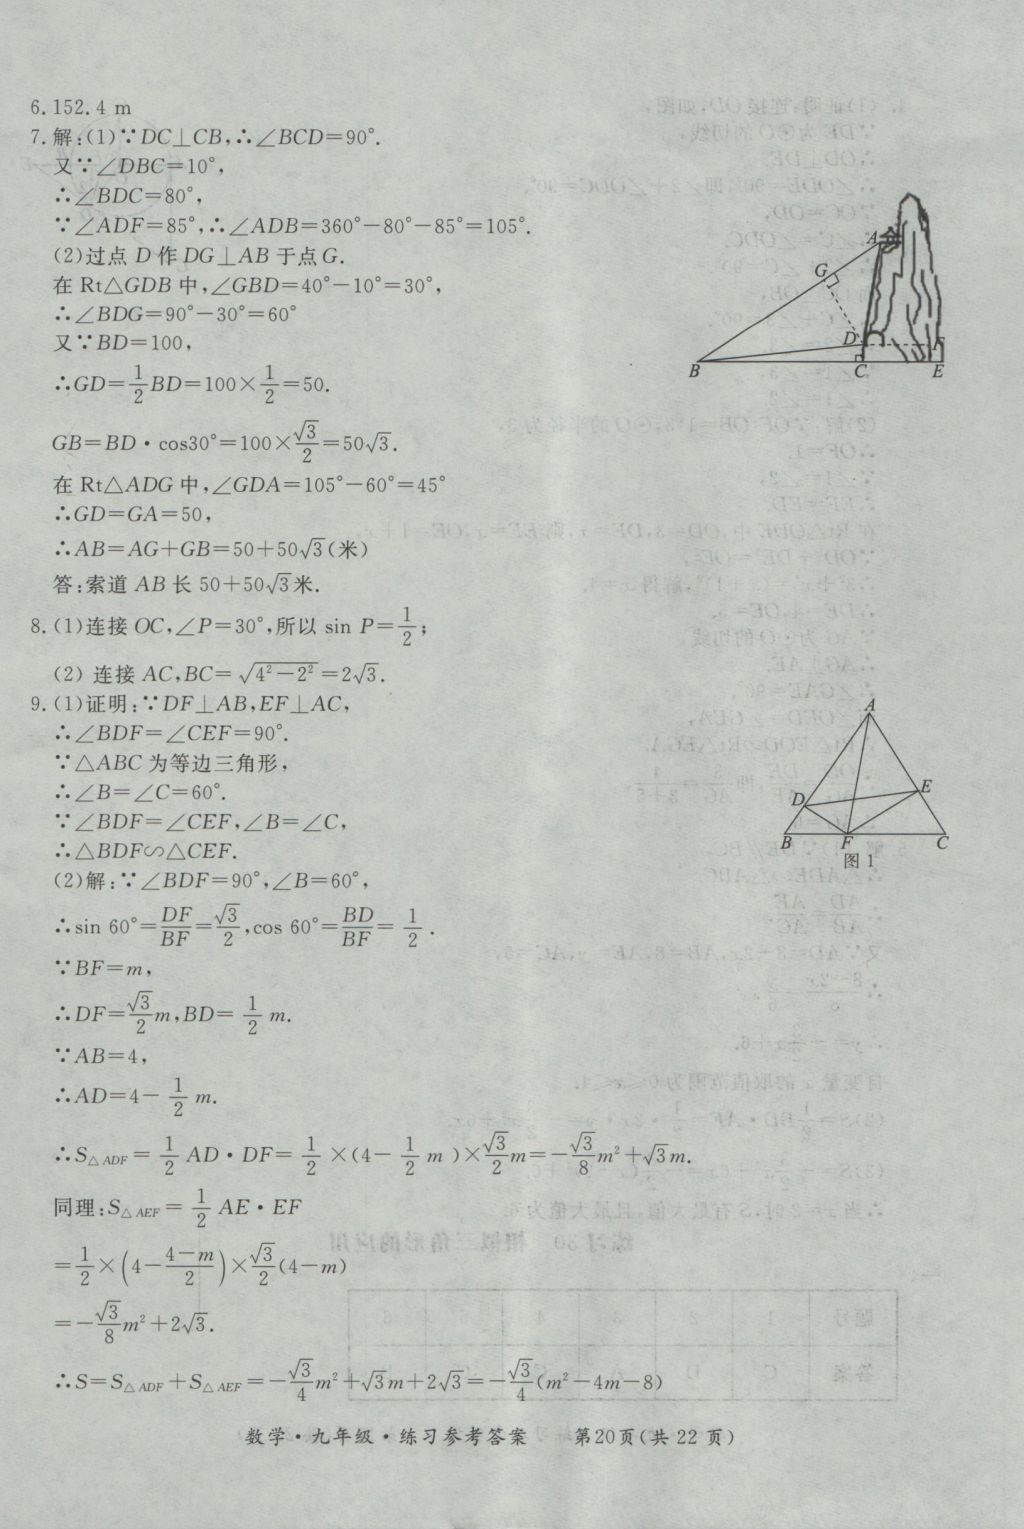 6.152.4 m
7.解:(1)∵DC⊥CB,∴∠BCD=90°.
又∵∠DBC=10°,
∴∠BDC=80°,
∵∠ADF=85°,∴∠ADB=360°-80°-85°=105°.
(2)过点 D 作 DG⊥AB 于点G.
在 Rt△GDB 中,∠GBD=40°-10°=30°,
∴∠BDG=90°-30°=60°
又∵BD=100,
∴GD=1/2BD=100×1/2=50.
GB=BD·cos30°=100×√3/2=50√3.
在 Rt△ADG 中,∠GDA=105°-60°=45°
∴GD=GA=50,
∴AB=AG+GB=50+50√3(米)
答:索道 AB 长 50+50√3米.
A
G
D
F
B
C
E
8.(1)连接 OC,∠P=30°,所以 sin P=1/2;
(2) 连接 AC,BC=√(4²-2²)=2√3.
9.(1)证明:∵DF⊥AB,EF⊥AC,
∴∠BDF=∠CEF=90°.
∵△ABC 为等边三角形,
∴∠B=∠C=60°.
∵∠BDF=∠CEF,∠B=∠C,
∴△BDF∽△CEF.
A
D
E
B
F
C
图 1
(2)解:∵∠BDF=90°,∠B=60°,
∴sin 60°=DF/BF=√3/2,cos 60°=BD/BF=1/2.
∵BF=m,
∴DF=√3/2m,BD=1/2 m.
∵AB=4,
∴AD=4-1/2 m.
∴S△ADF=1/2 AD·DF=1/2×(4-1/2 m)×√3/2m=-√3/8m²+√3m.
同理:S△AEF=1/2 AE·EF
=1/2×(4-(4-m)/2)×√3/2(4-m)
=-√3/8m²+2√3.
∴S=S△ADF+S△AEF=-√3/4m²+√3m+2√3=-√3/4(m²-4m-8)
数学·九年级·练习参考答案 第20页(共 22 页)